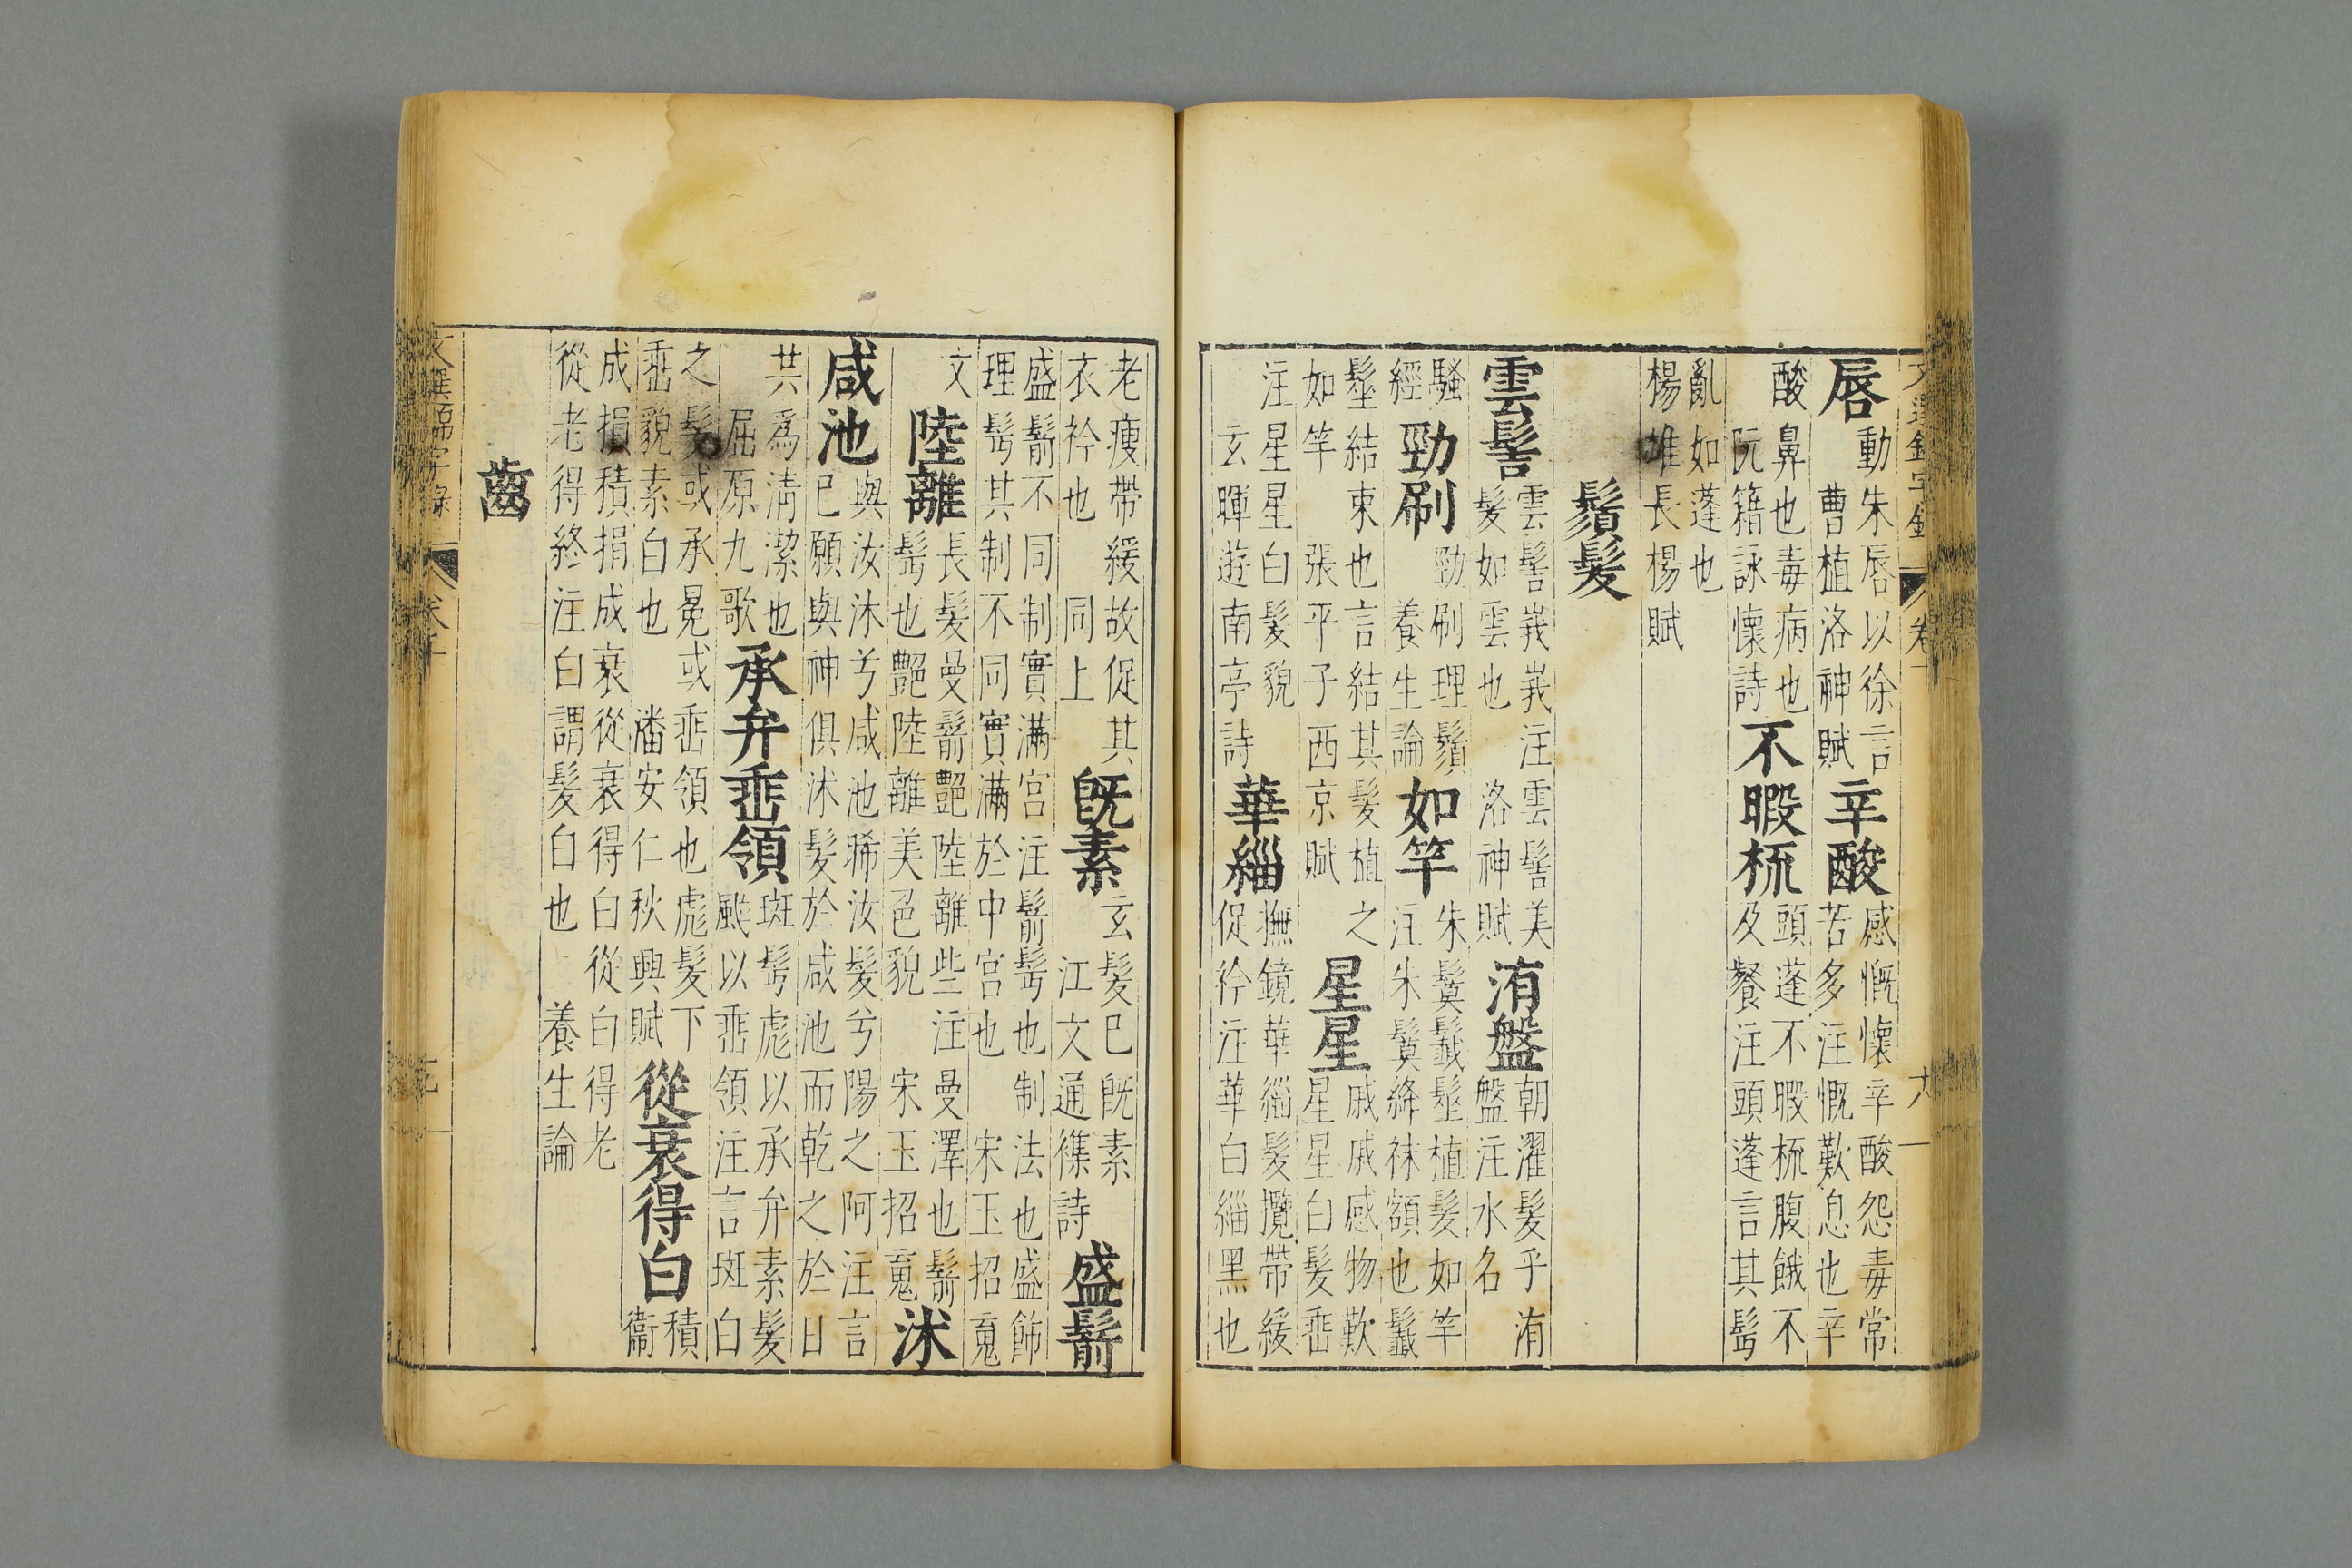 唇
動朱唇以徐言
曹植洛神賦
辛酸
感慨懷辛酸怨毒常
苦多注慨歎息也辛
酸鼻也毒病也
阮籍詠懷詩
不暇梳
頭蓬不暇梳腹餓不
及餐注頭蓬言其髩
亂如蓬也
楊雄長楊賦
鬚髮
雲髻
雲髻峩峩注雲髻美
髮如雲也 洛神賦
洧盤
朝濯髮乎洧
盤注水名
騷
經
勁刷
勁刷理鬚
養生論
如竿
朱鬘鬛髽植髮如竿
注朱鬘絳袜額也鬛
髽結束也言結其髮植之
如竿 張平子西京賦
星星
戚戚感物歎
星星白髮垂
注星星白髮貌
玄暉遊南亭詩
華緇
撫鏡華緇髮攬帶緩
促衿注華白緇黑也
老瘦帶緩故促其
衣衿也 同上
既素
玄髮已既素
江文通襍詩
盛鬋
盛鬋不同制實滿宫注鬋髩也制法也盛飾
理髩其制不同實滿於中宫也 宋玉招䰟
文
陸離
長髮曼鬋艷陸離些注曼澤也鬋
髩也艷陸離美色貌 宋玉招䰟
沐
咸池
與汝沐兮咸池晞汝髮兮陽之阿注言
已願與神俱沐髮於咸池而乾之於日
共爲清潔也
屈原九歌
承弁垂領
斑髩髟以承弁素髮
颯以垂領注言斑白
之髮或承冕或垂領也髟髮下
垂貌素白也 潘安仁秋興賦
從衰得白
積
衞
成損積損成衰從衰得白從白得老
從老得終注白謂髮白也 養生論
齒
文選錦字錄 卷十